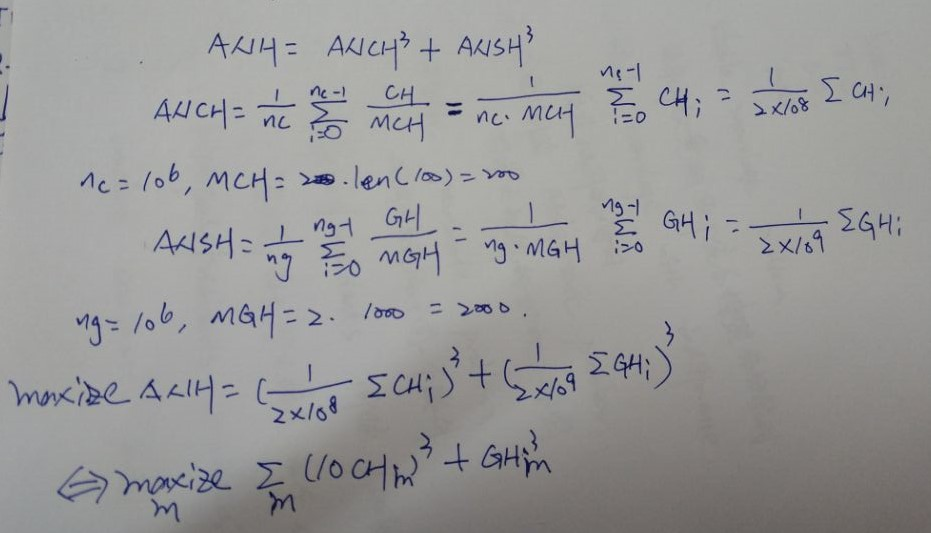 ANH = ANCH³ + ANSH³
ANCH = 1/nc Σ_{i=0}^{nc-1} CH/MCH = 1/(nc·MCH) Σ_{i=0}^{nc-1} CH_i = 1/(2×10⁸) Σ CH_i,
nc = 10⁶, MCH = 2·len(100) = 200
ANSH = 1/ng Σ_{i=0}^{ng-1} GH/MGH = 1/(ng·MGH) Σ_{i=0}^{ng-1} GH_i = 1/(2×10⁹) ΣGH_i
ng = 10⁶, MGH = 2· 1000 = 2000.
maxize ANH = (1/(2×10⁸) ΣCH_i)³ + (1/(2×10⁹) ΣGH_i)³
⇔ maxize_m Σ_m (10CH_m)³ + GH_m³